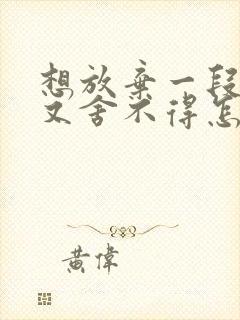 想放弃一段
又舍不得怎
黄伟